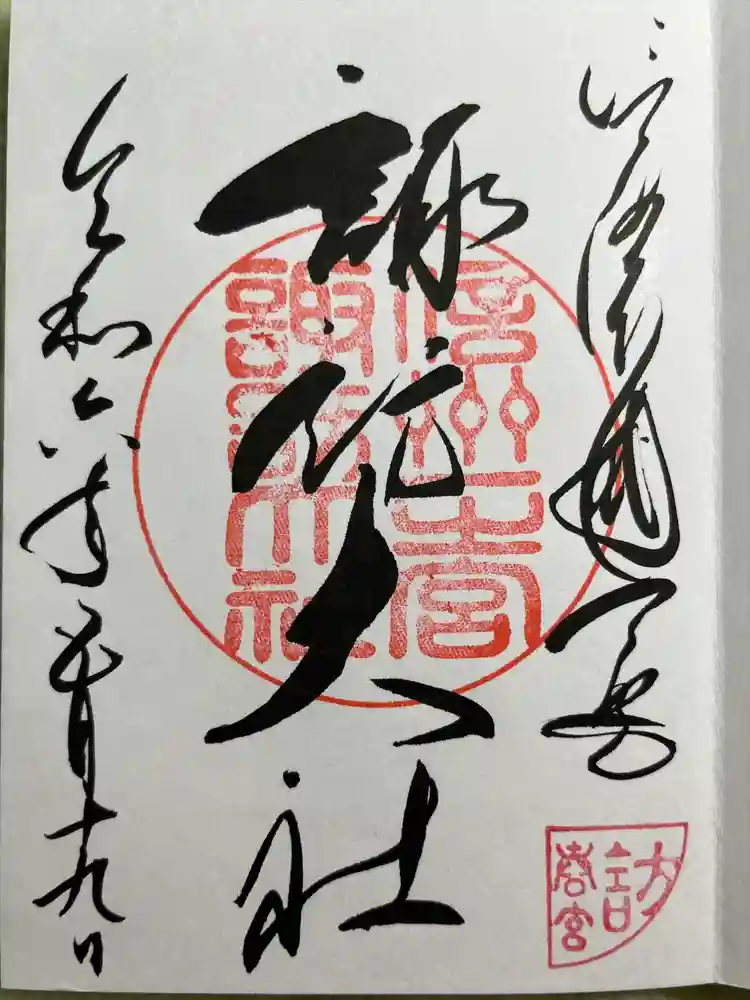 信濃國一宮
諏訪大社
諏訪大社
令和六年
月十九日
訪
春宮